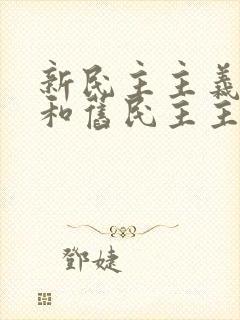 新民主主義
和舊民主主
鄧婕